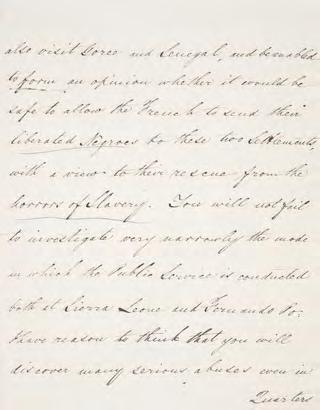 also visit Goree and Senegal, and be enabled
to form an opinion whether it would be
safe to allow the French to send their
liberated Negroes to these two Settlements,
with a view to their rescue from the
horrors of Slavery. You will not fail
to investigate very narrowly the mode
in which the Public Service is conducted
both at Sierra Leone and Fernando Po.
I have reason to think that you will
discover many serious abuses even in
Quarters